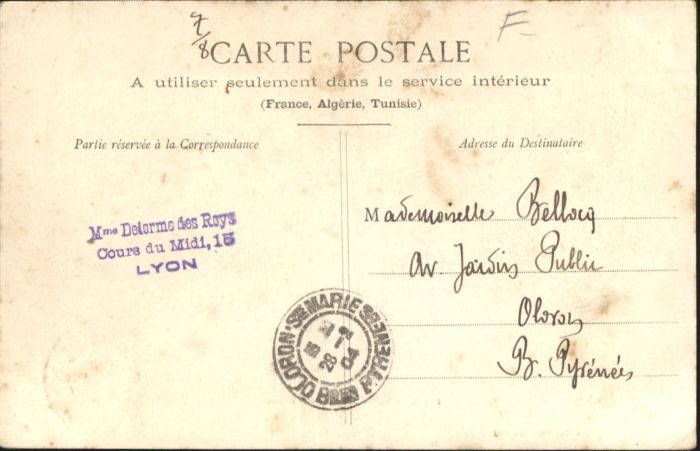 7/8
F
CARTE POSTALE
A utiliser seulement dans le service intérieur
(France, Algérie, Tunisie)
Partie réservée à la Correspondance
Adresse du Destinataire
Mme Delorme des Roys
Cours du Midi, 15
LYON
Mademoiselle Bellocq
Av. Jardin Public
Oloron
B. Pyrénées
OLORON-STE MARIE BSES PYRENEES
28
04